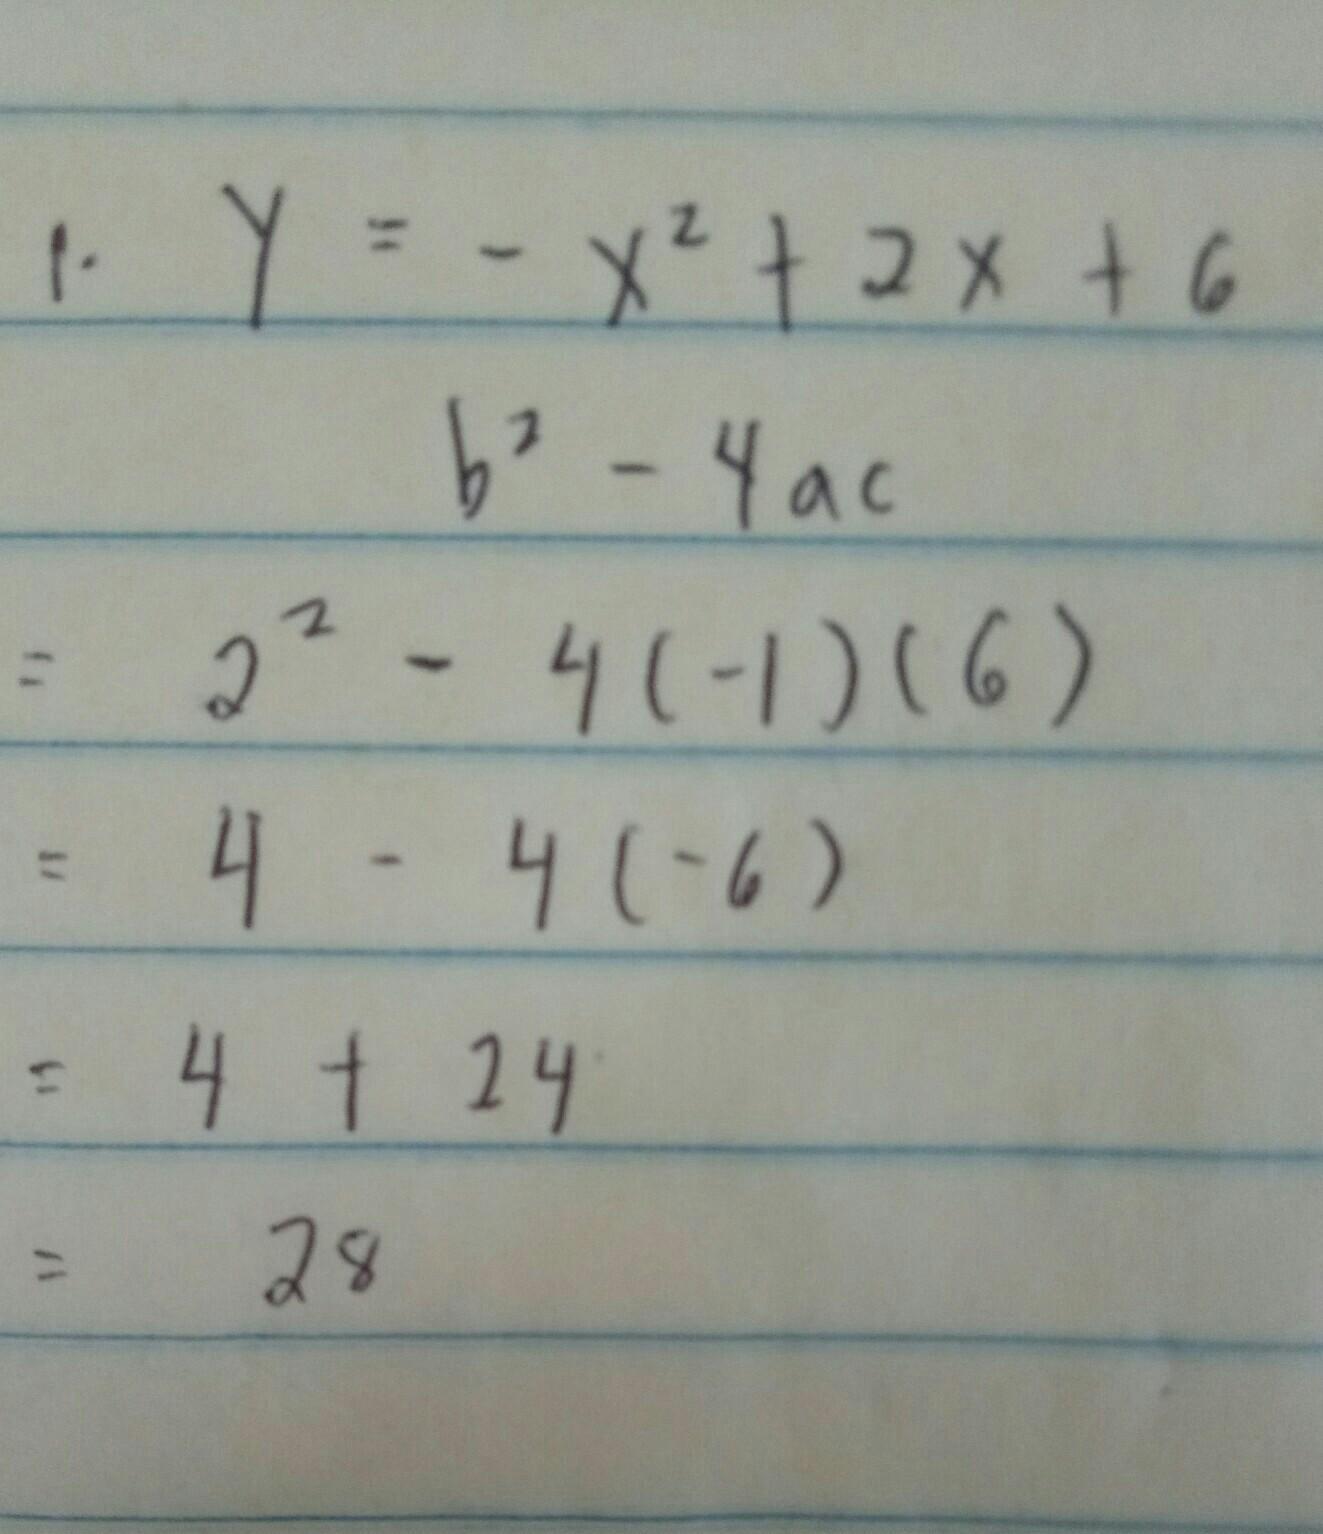 1. y = - x² + 2x + 6
b² - 4ac
= 2² - 4(-1)(6)
= 4 - 4(-6)
= 4 + 24
= 28